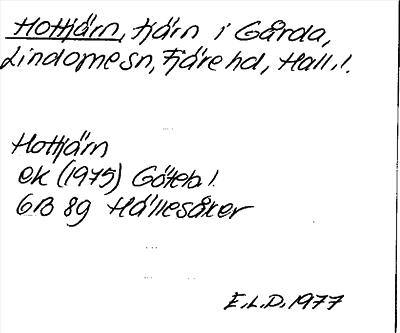 Hottjärn, tjärn i Gårda,
Lindomesn, Fjäre hd, Hall.l.
Hottjärn
ek (1975) Göteb l.
6B 8g Hällesåker
E.L.D. 1977